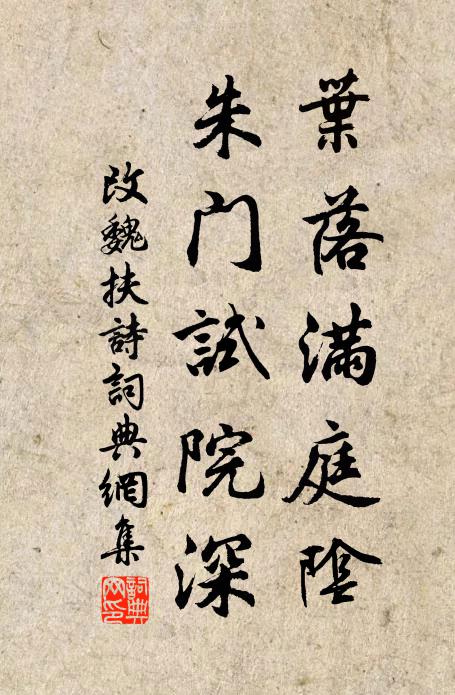 葉落滿庭陰
朱門試院深
改魏扶詩詞典網集
詞典網印